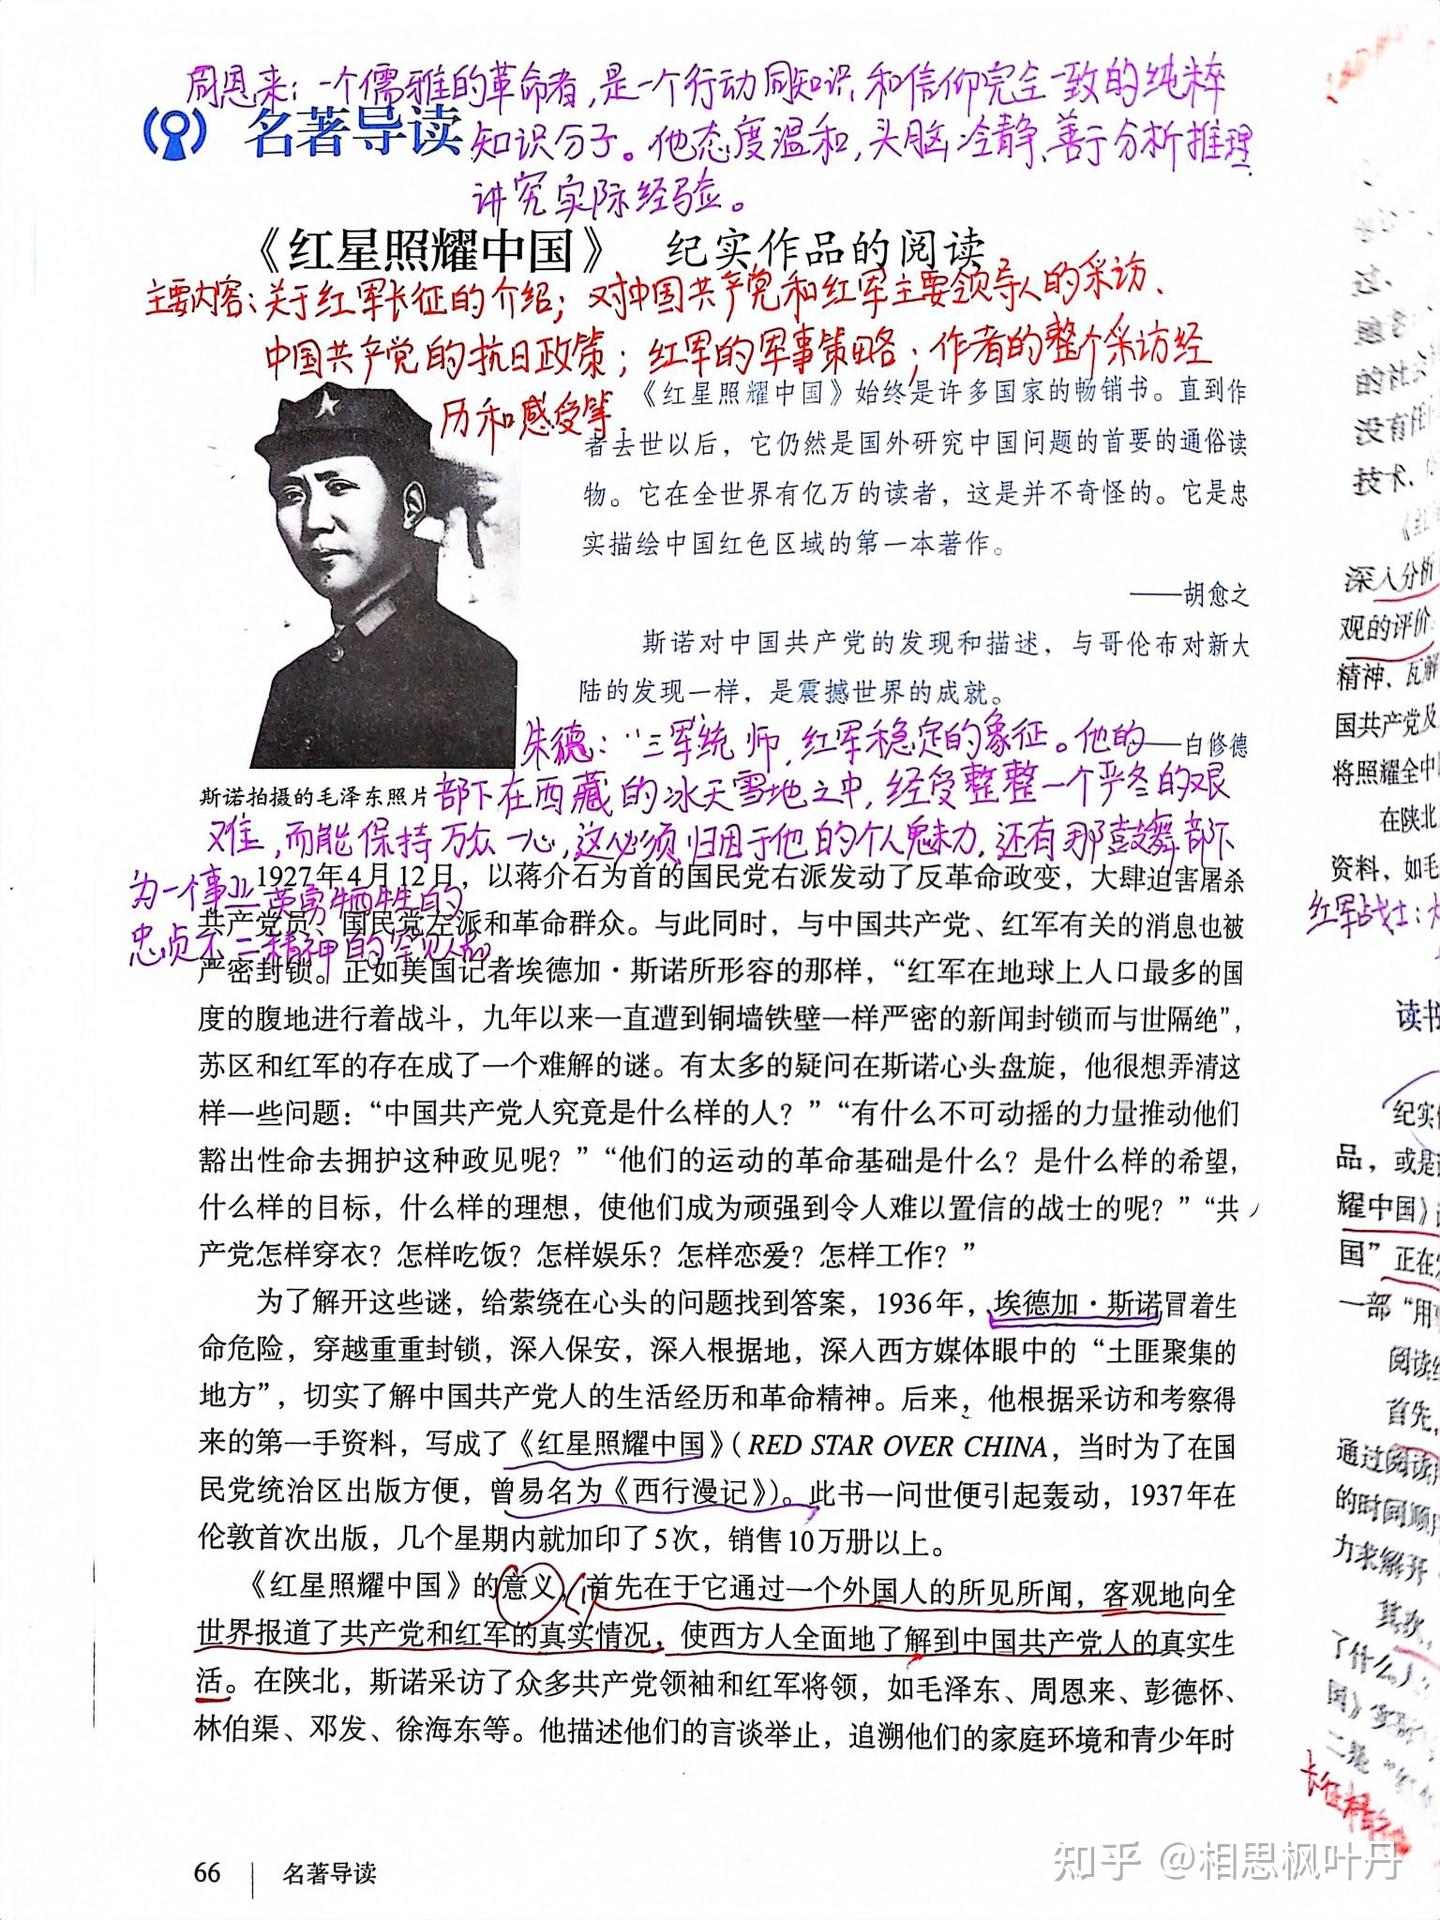 周恩来：一个儒雅的革命者，是一个行动同知识和信仰完全一致的纯粹
名著导读
知识分子。他态度温和，头脑冷静、善于分析推理
讲究实际经验。
《红星照耀中国》 纪实作品的阅读
主要内容：关于红军长征的介绍；对中国共产党和红军主要领导人的采访、
中国共产党的抗日政策；红军的军事策略；作者的整个采访经
历和感受等.
《红星照耀中国》始终是许多国家的畅销书。直到作
者去世以后，它仍然是国外研究中国问题的首要的通俗读
物。它在全世界有亿万的读者，这是并不奇怪的。它是忠
实描绘中国红色区域的第一本著作。
——胡愈之
斯诺对中国共产党的发现和描述，与哥伦布对新大
陆的发现一样，是震撼世界的成就。
——白修德
斯诺拍摄的毛泽东照片
朱德：“三军统帅，红军稳定的象征。他的
部下在西藏的冰天雪地之中，经受整整一个严冬的艰
难，而能保持万众一心，这必须归因于他的个人魅力，还有那鼓舞部下
为一个事业英勇牺牲的
忠贞不二精神的罕见人格。
1927年4月12日，以蒋介石为首的国民党右派发动了反革命政变，大肆迫害屠杀
共产党员、国民党左派和革命群众。与此同时，与中国共产党、红军有关的消息也被
严密封锁。正如美国记者埃德加·斯诺所形容的那样，“红军在地球上人口最多的国
度的腹地进行着战斗，九年以来一直遭到铜墙铁壁一样严密的新闻封锁而与世隔绝”，
苏区和红军的存在成了一个难解的谜。有太多的疑问在斯诺心头盘旋，他很想弄清这
样一些问题：“中国共产党人究竟是什么样的人？”“有什么不可动摇的力量推动他们
豁出性命去拥护这种政见呢？”“他们的运动的革命基础是什么？是什么样的希望，
什么样的目标，什么样的理想，使他们成为顽强到令人难以置信的战士的呢？”“共
产党怎样穿衣？怎样吃饭？怎样娱乐？怎样恋爱？怎样工作？”
为了解开这些谜，给萦绕在心头的问题找到答案，1936年，埃德加·斯诺冒着生
命危险，穿越重重封锁，深入保安，深入根据地，深入西方媒体眼中的“土匪聚集的
地方”，切实了解中国共产党人的生活经历和革命精神。后来，他根据采访和考察得
来的第一手资料，写成了《红星照耀中国》（RED STAR OVER CHINA，当时为了在国
民党统治区出版方便，曾易名为《西行漫记》）。此书一问世便引起轰动，1937年在
伦敦首次出版，几个星期内就加印了5次，销售10万册以上。
《红星照耀中国》的意义，首先在于它通过一个外国人的所见所闻，客观地向全
世界报道了共产党和红军的真实情况，使西方人全面地了解到中国共产党人的真实生
活。在陕北，斯诺采访了众多共产党领袖和红军将领，如毛泽东、周恩来、彭德怀、
林伯渠、邓发、徐海东等。他描述他们的言谈举止，追溯他们的家庭环境和青少年时
66 名著导读
技术、
深入分析
观的评价
精神、瓦解
国共产党及
将照耀全中
在陕北
资料，如毛
红军战士：
读书
纪实
品，或是
耀中国》
国”正在
一部“用
阅读
首先，
通过阅读
的时间顺
力求解开
其次，
了什么人
知乎 @相思枫叶丹